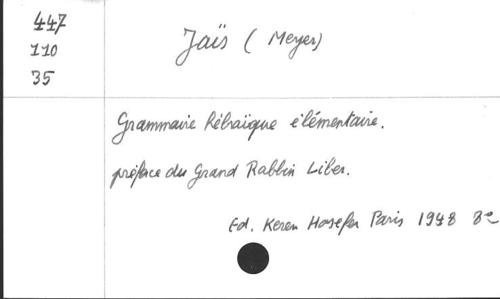 447
110
35
Jaïs ( Meyer)
Grammaire hébraïque élémentaire.
préface du Grand Rabbin Liber.
Ed. Keren Hasefer Paris 1948 8e